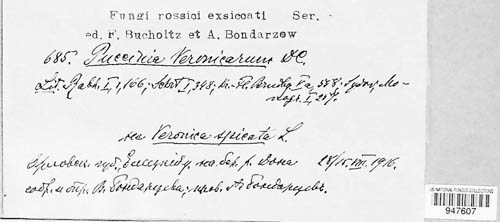 Fungi rossici exsiccati Ser.
ed. F. Bucholtz et A. Bondarzow
685. Puccinia Veronicarum DC.
Lit. Rabh. I, 1, 166; Schröt I, 348; Kr.-Fl.
I,
на Veronica spicata L.
Орловск. губ., Елецк. у. на бер. р. Дона 28/15.VII. 1916.
собр. и опр. В. Бондарцева, пров. А. Бондарцевъ.
US NATIONAL FUNGUS COLLECTIONS
947607